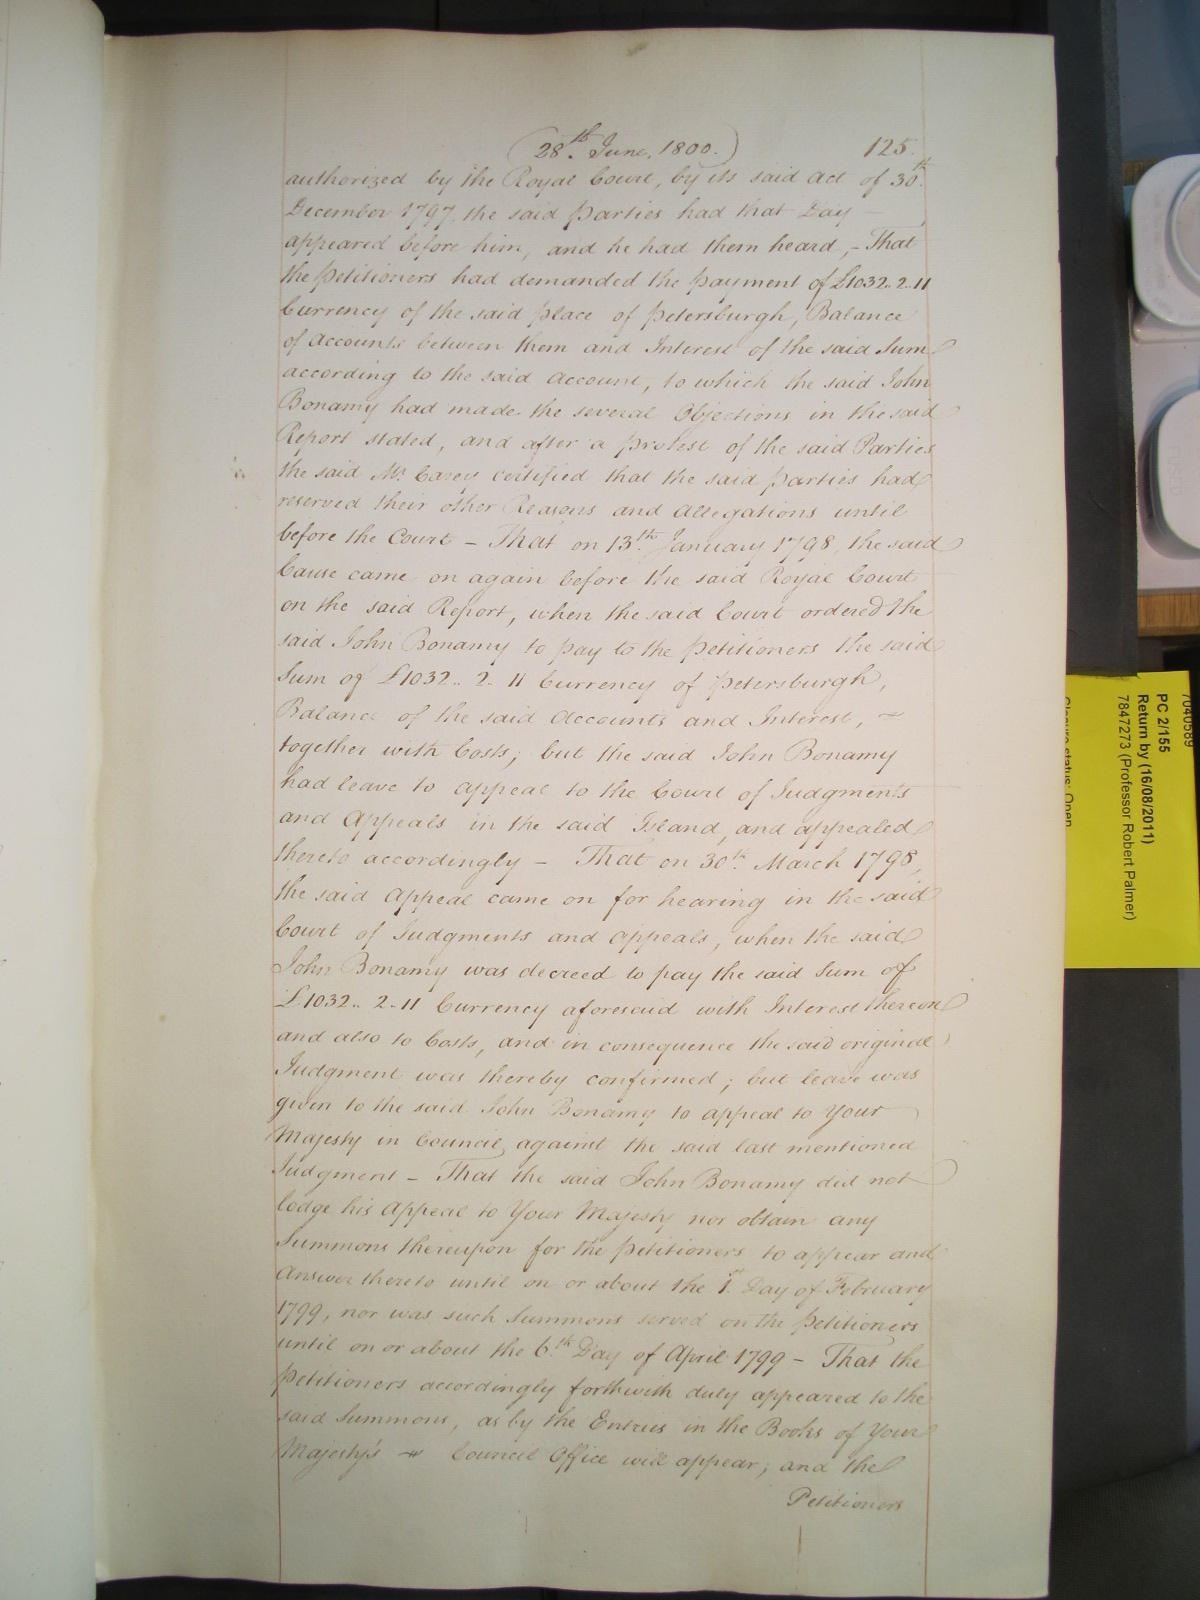 (28.th June, 1800.) 125.
authorized by the Royal Court, by its said Act of 30.th
December 1797, the said Parties had that Day —
appeared before him, and he had them heard, – That
the Petitioners had demanded the payment of £1032.. 2.. 11
Currency of the said place of Petersburgh, Balance
of Accounts between them and Interest of the said Sum
according to the said Account, to which the said John
Bonamy had made the several Objections in the said
Report stated, and after a protest of the said Parties
the said Mr. Carey certified that the said parties had
reserved their other Reasons and Allegations until
before the Court – That on 13.th January 1798, the said
Cause came on again before the said Royal Court
on the said Report, when the said Court ordered the
said John Bonamy to pay to the Petitioners the said
Sum of £1032.. 2. 11 Currency of Petersburgh,
Balance of the said Accounts and Interest, ~
together with Costs; but the said John Bonamy
had leave to appeal to the Court of Judgments
and Appeals in the said Island, and appealed
thereto accordingly – That on 30.th March 1798,
the said Appeal came on for hearing in the said
Court of Judgments and Appeals, when the said
John Bonamy was decreed to pay the said Sum of
£1032.. 2. 11 Currency aforesaid with Interest thereon
and also to Costs, and in consequence the said original
Judgment was thereby confirmed; but leave was
given to the said John Bonamy to appeal to Your
Majesty in Council, against the said last mentioned
Judgment – That the said John Bonamy did not
lodge his Appeal to Your Majesty nor obtain any
Summons thereupon for the Petitioners to appear and
Answer thereto until on or about the 1.st Day of February
1799, nor was such Summons served on the Petitioners
until on or about the 6.th Day of April 1799 – That the
Petitioners accordingly forthwith duly appeared to the
said Summons, as by the Entries in the Books of Your
Majesty's Council Office will appear; and the
Petitioners
7040589
PC 2/155
Return by (16/08/2011)
7847273 (Professor Robert Palmer)
Closure status: Open